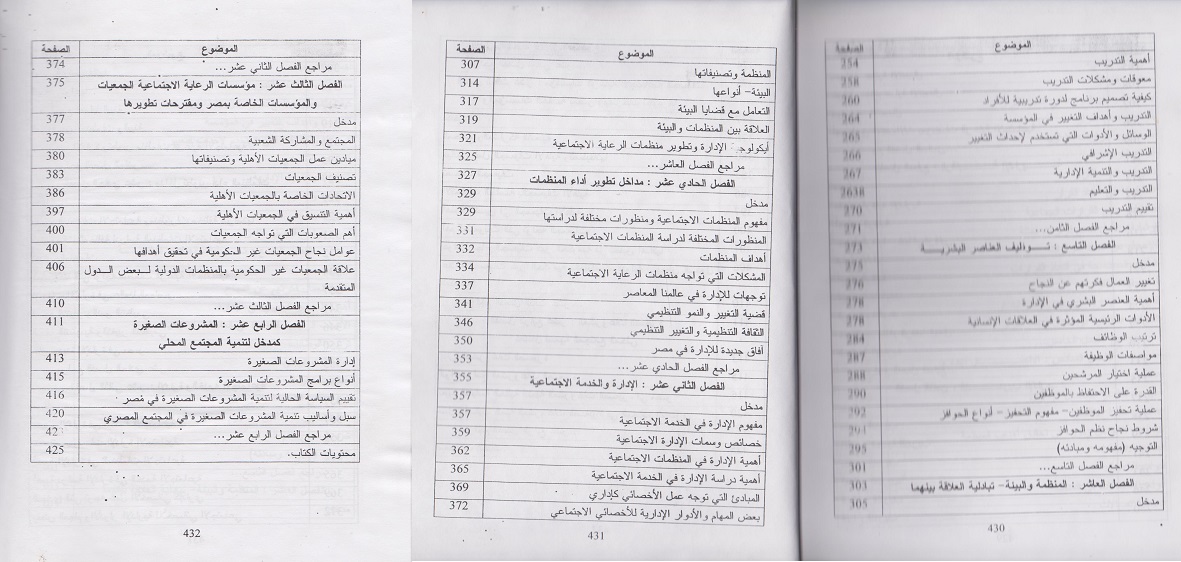 الموضوع الصفحة
أهمية التدريب 254
معوقات ومشكلات التدريب 258
كيفية تصميم برنامج لدورة تدريبية للأفراد 260
التدريب وأهداف التغيير في المؤسسة 264
الوسائل والأدوات التي تستخدم لإحداث التغيير 265
التدريب الإشرافي 266
التدريب والتنمية الإدارية 267
التدريب والتعليم 2638
تقييم التدريب 270
مراجع الفصل الثامن... 271
الفصل التاسع : توظيف العناصر البشرية 273
مدخل 275
تغيير العمال فكرتهم عن النجاح 276
أهمية العنصر البشري في الإدارة 278
الأدوات الرئيسية المؤثرة في العلاقات الإنسانية 278
ترتيب الوظائف 284
مواصفات الوظيفة 287
عملية اختيار المرشحين 288
القدرة على الاحتفاظ بالموظفين 290
عملية تحفيز الموظفين- مفهوم التحفيز- أنواع الحوافز 292
شروط نجاح نظم الحوافز 294
التوجيه (مفهومه ومبادئه) 295
مراجع الفصل التاسع... 301
الفصل العاشر : المنظمة والبيئة- تبادلية العلاقة بينهما 303
مدخل 305
430
الموضوع الصفحة
المنظمة وتصنيفاتها 307
البيئة- أنواعها 314
التعامل مع قضايا البيئة 317
العلاقة بين المنظمات والبيئة 319
أيكولوجي الإدارة وتطوير منظمات الرعاية الاجتماعية 321
مراجع الفصل العاشر... 325
الفصل الحادي عشر : مداخل تطوير أداء المنظمات 327
مدخل 329
مفهوم المنظمات الاجتماعية ومنظورات مختلفة لدراستها 329
المنظورات المختلفة لدراسة المنظمات الاجتماعية 331
أهداف المنظمات 332
المشكلات التي تواجه منظمات الرعاية الاجتماعية 334
توجهات للإدارة في عالمنا المعاصر 337
قضية التغيير والنمو التنظيمي 341
الثقافة التنظيمية والتغيير التنظيمي 346
آفاق جديدة للإدارة في مصر 350
مراجع الفصل الحادي عشر ... 353
الفصل الثاني عشر : الإدارة والخدمة الاجتماعية 355
مدخل 357
مفهوم الإدارة في الخدمة الاجتماعية 357
خصائص وسمات الإدارة الاجتماعية 359
أهمية الإدارة في المنظمات الاجتماعية 362
أهمية دراسة الإدارة في الخدمة الاجتماعية 365
المبادئ التي توجه عمل الأخصائي كإداري 369
بعض المهام والأدوار الإدارية للأخصائي الاجتماعي 372
431
الموضوع الصفحة
مراجع الفصل الثاني عشر... 374
الفصل الثالث عشر : مؤسسات الرعاية الاجتماعية الجمعيات 375
والمؤسسات الخاصة بمصر ومقترحات تطويرها
مدخل 377
المجتمع والمشاركة الشعبية 378
ميادين عمل الجمعيات الأهلية وتصنيفاتها 380
تصنيف الجمعيات 383
الاتحادات الخاصة بالجمعيات الأهلية 386
أهمية التنسيق في الجمعيات الأهلية 397
أهم الصعوبات التي تواجه الجمعيات 400
عوامل نجاح الجمعيات غير الحكومية في تحقيق أهدافها 401
علاقة الجمعيات غير الحكومية بالمنظمات الدولية لبعض الدول 406
المتقدمة
مراجع الفصل الثالث عشر... 410
الفصل الرابع عشر : المشروعات الصغيرة 411
كمدخل لتنمية المجتمع المحلي
إدارة المشروعات الصغيرة 413
أنواع برامج المشروعات الصغيرة 415
تقييم السياسة الحالية لتنمية المشروعات الصغيرة في مصر 416
سبل وأساليب تنمية المشروعات الصغيرة في المجتمع المصري 420
مراجع الفصل الرابع عشر... 42
محتويات الكتاب. 425
432